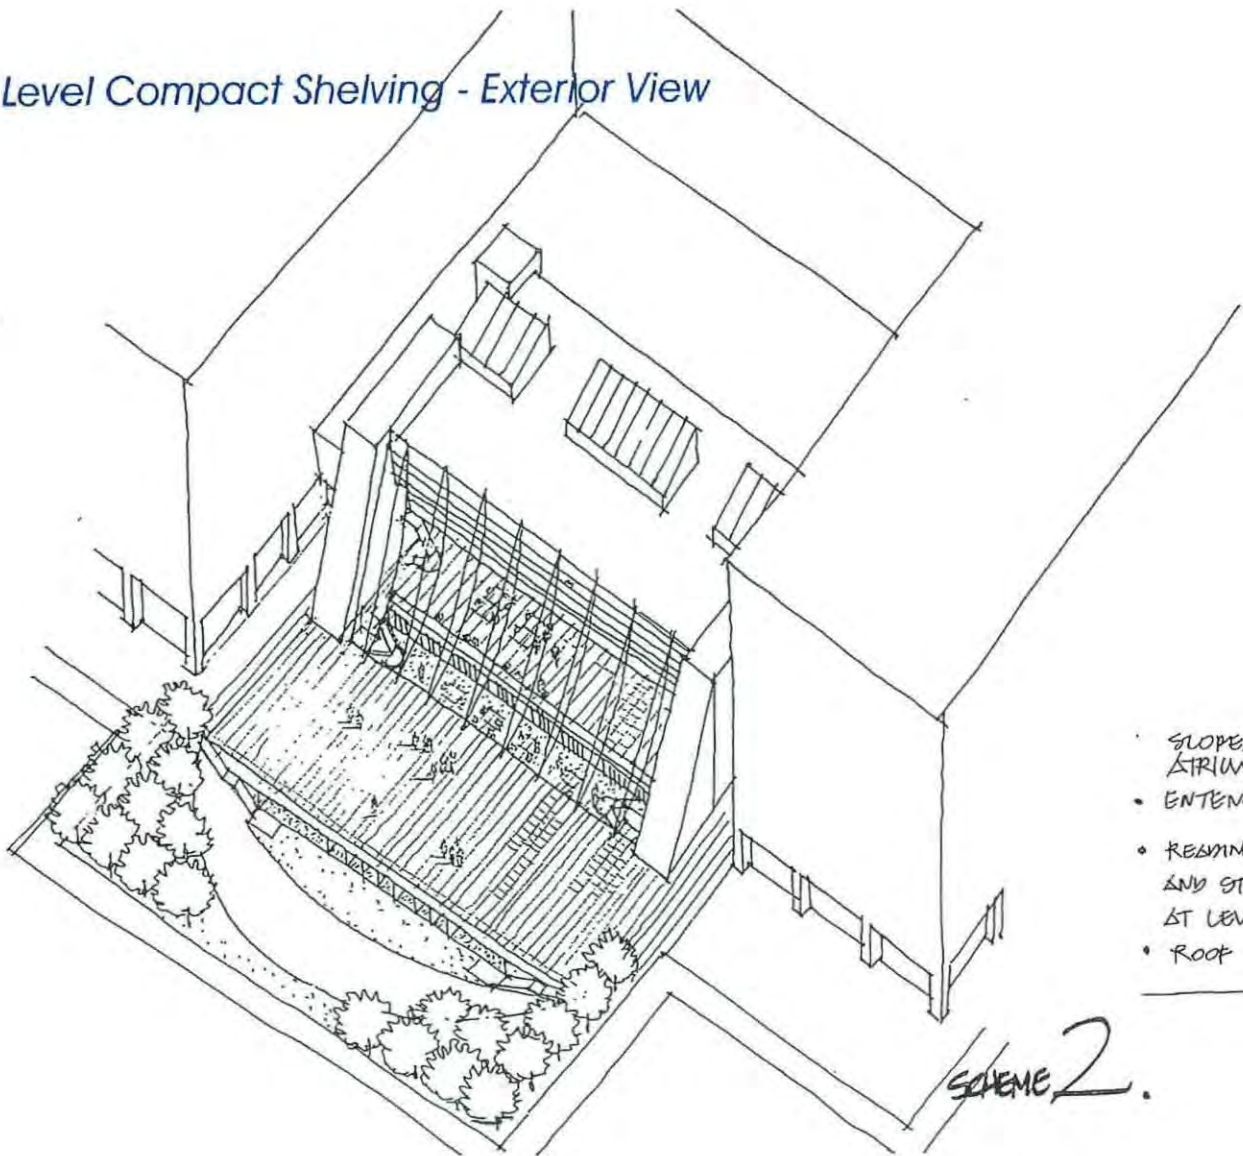 Level Compact Shelving - Exterior View
SLOPE
ATRIUM
ENTEN
READIN
AND ST
AT LEV
ROOF
SCHEME 2.